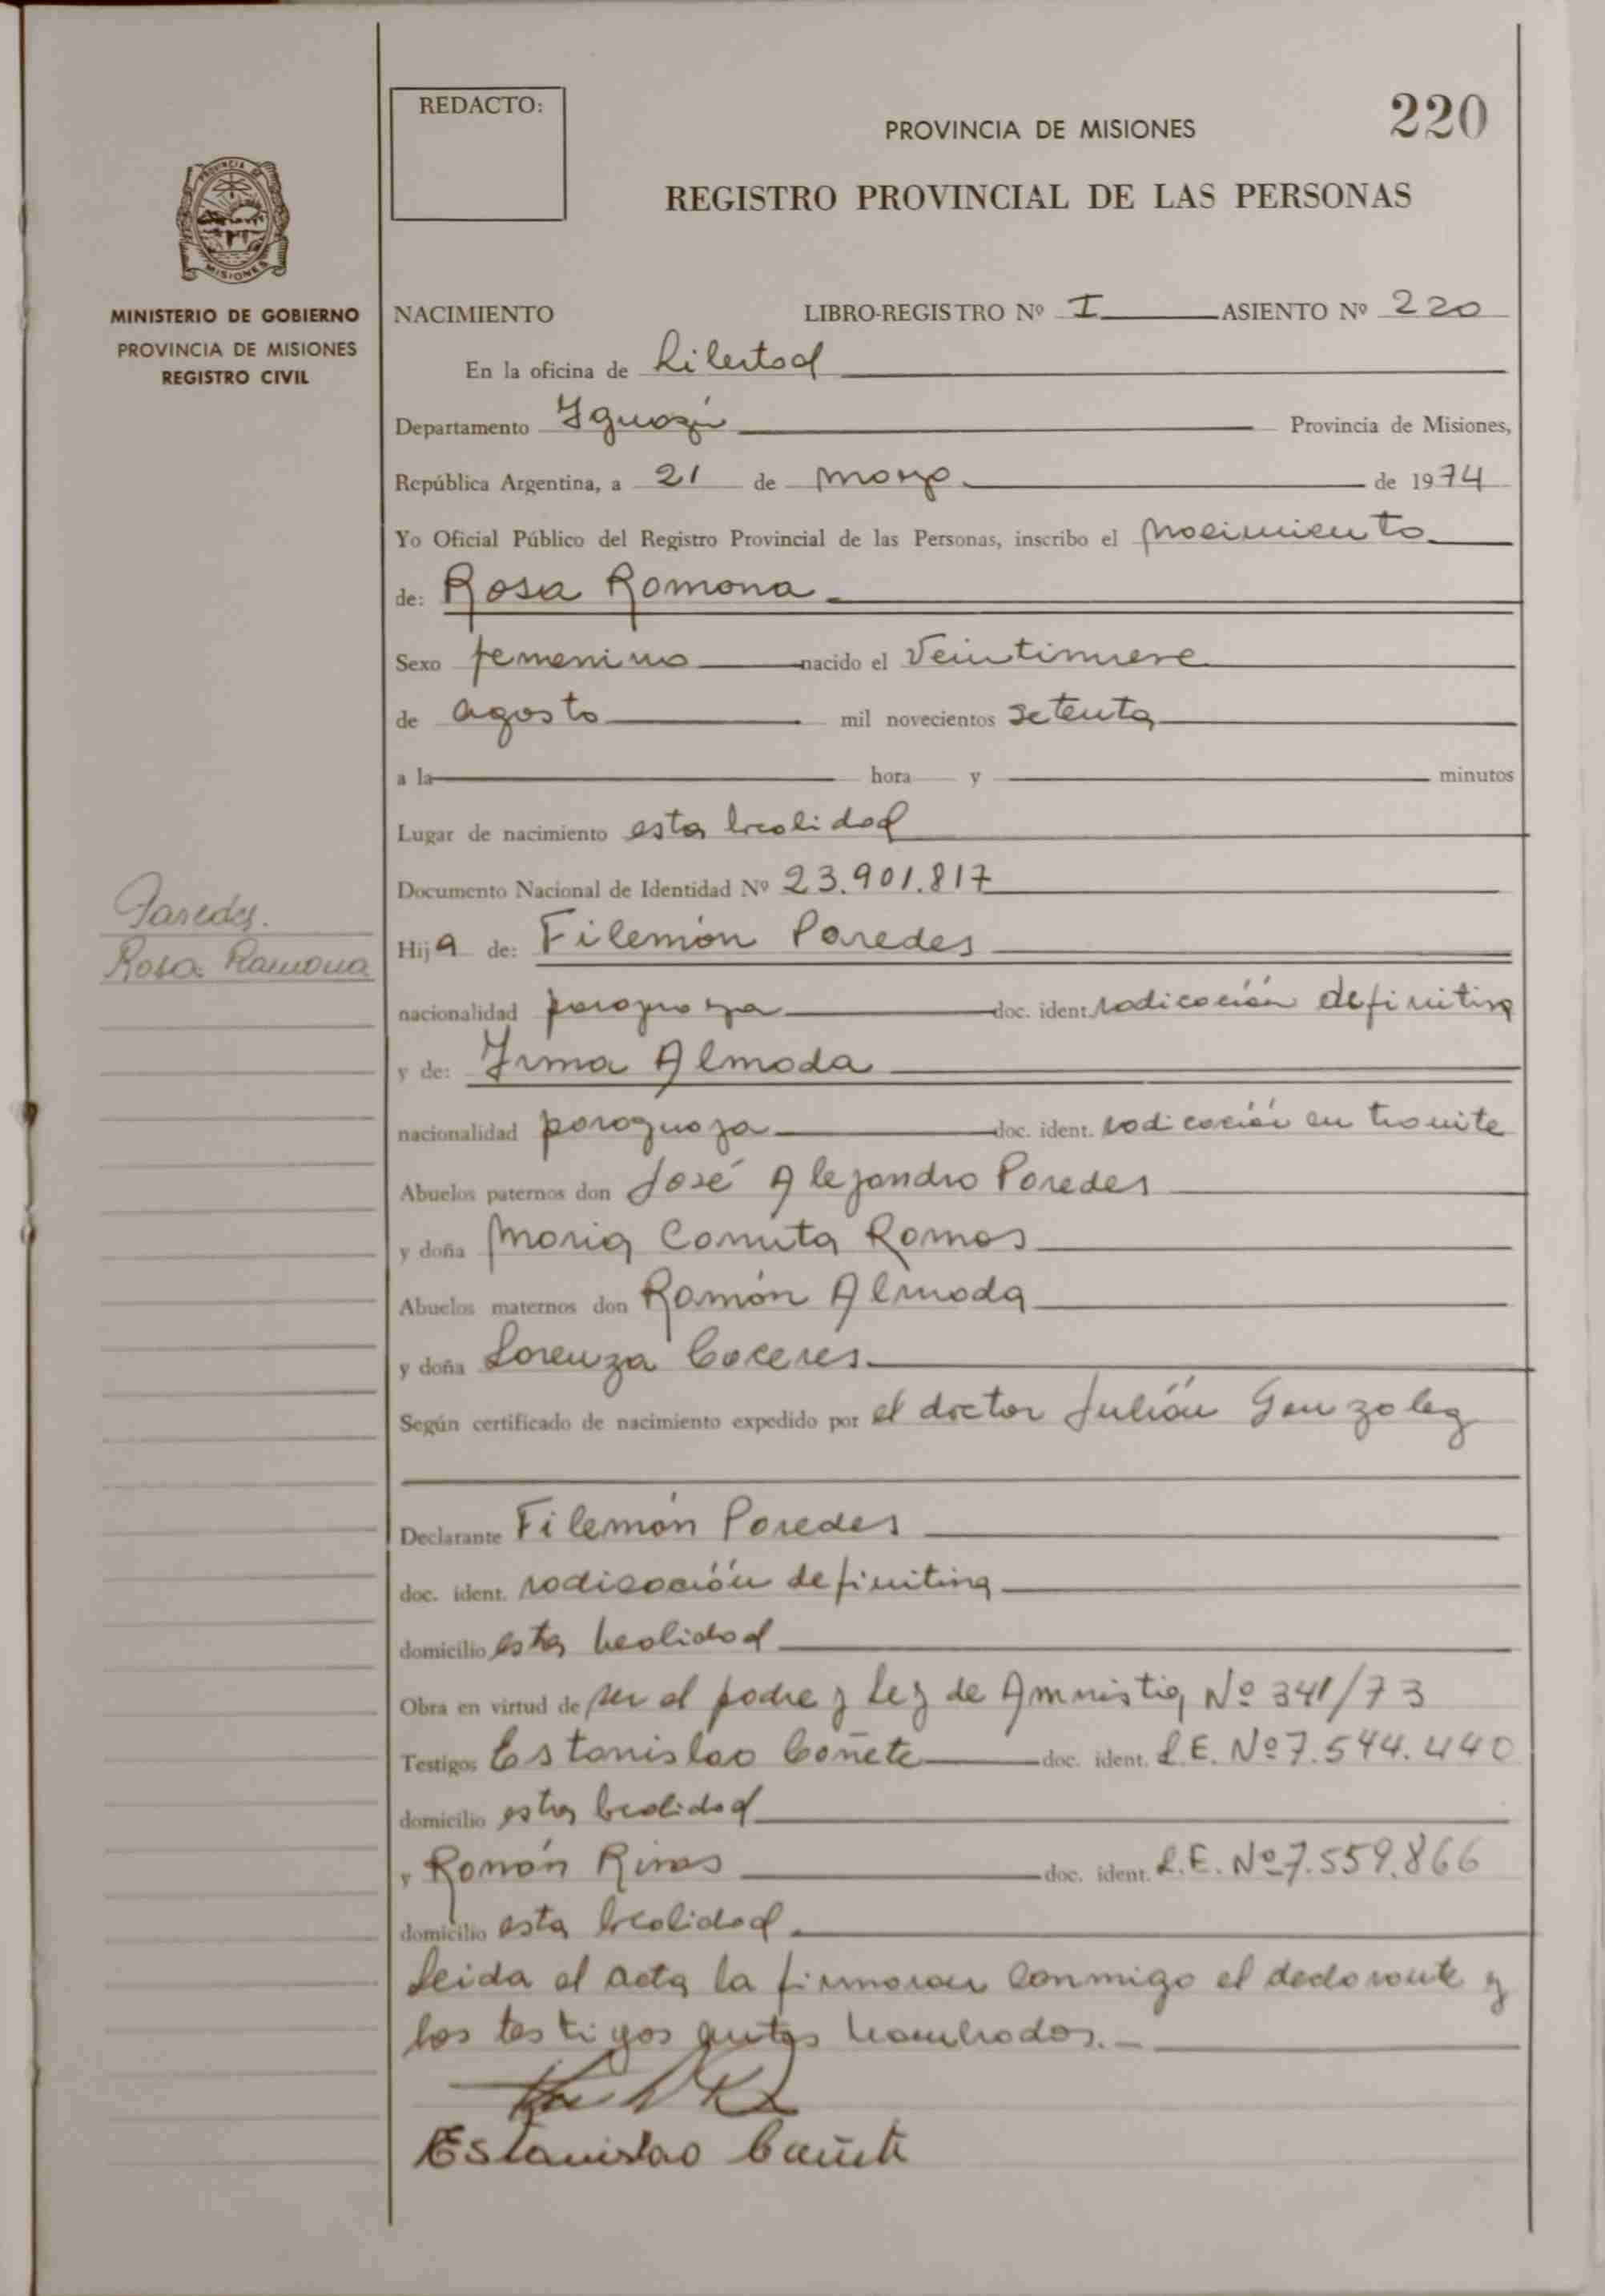 REDACTO:
PROVINCIA DE MISIONES
220
REGISTRO PROVINCIAL DE LAS PERSONAS
PROVINCIA DE
MISIONES
MINISTERIO DE GOBIERNO
PROVINCIA DE MISIONES
REGISTRO CIVIL
NACIMIENTO LIBRO-REGISTRO Nº I ASIENTO Nº 220
En la oficina de Libertad
Departamento Iguazú Provincia de Misiones,
República Argentina, a 21 de marzo de 1974
Yo Oficial Público del Registro Provincial de las Personas, inscribo el nacimiento
de: Rosa Ramona
Sexo femenino nacido el Veintinueve
de agosto mil novecientos setenta
a la hora y minutos
Lugar de nacimiento esta localidad
Documento Nacional de Identidad Nº 23.901.817
Paredes.
Rosa Ramona
Hija de: Filemón Paredes
nacionalidad paraguaya doc. ident. radicación definitiva
y de: Irma Almada
nacionalidad paraguaya doc. ident. radicación en tramite
Abuelos paternos don José Alejandro Paredes
y doña Maria Ramos
Abuelos maternos don Ramón Almada
y doña Lorenza Caceres
Según certificado de nacimiento expedido por el doctor Julián Gonzalez
Declarante Filemón Paredes
doc. ident. radicación definitiva
domicilio esta localidad
Obra en virtud de ser el padre y Ley de Amnistia Nº 341/73
Testigos Estanislao Cañete doc. ident. L.E. Nº 7.544.440
domicilio esta localidad
y Ramón Rivas doc. ident. L.E. Nº 7.559.866
domicilio esta localidad
Leida el acta la firmaran conmigo el declarante y
los testigos antes nombrados.-
Estanislao Cañete